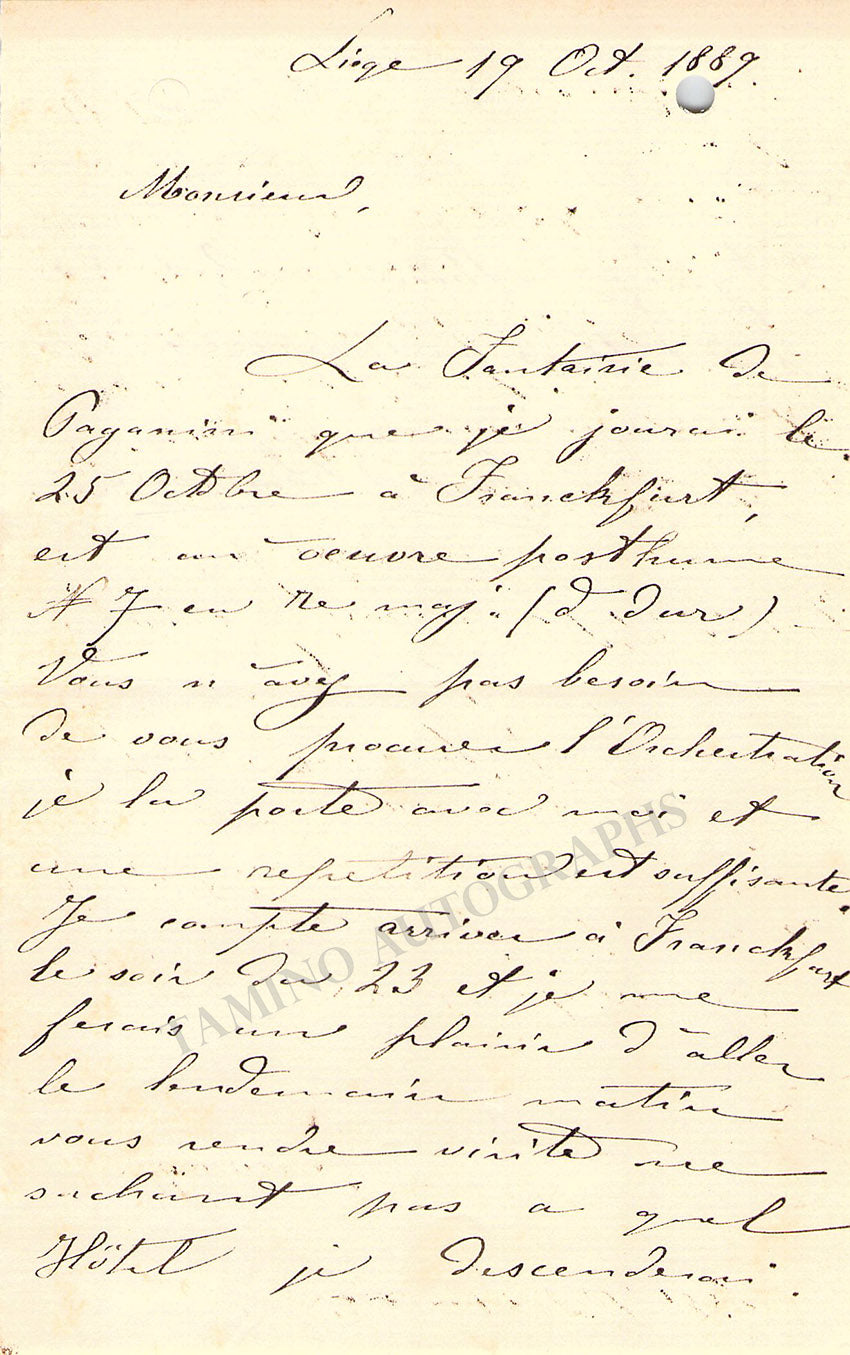 Liège 19 Oct. 1889.
Monsieur,
La Fantaisie de
Paganini que je jouerai le
25 Octobre à Franckfurt,
est un oeuvre posthume
N 7 en Re maj. (d dur)
Vous n'avez pas besoin
de vous procurer l'Orchestration
je la porte avec moi et
une repetition est suffisante.
Je compte arriver à Franckfurt
le soir du 23 et je me
ferais un plaisir d'aller
le lendemain matin
vous rendre visite ne
sachant pas a quel
Hôtel je descenderai.
TAMINO AUTOGRAPHS